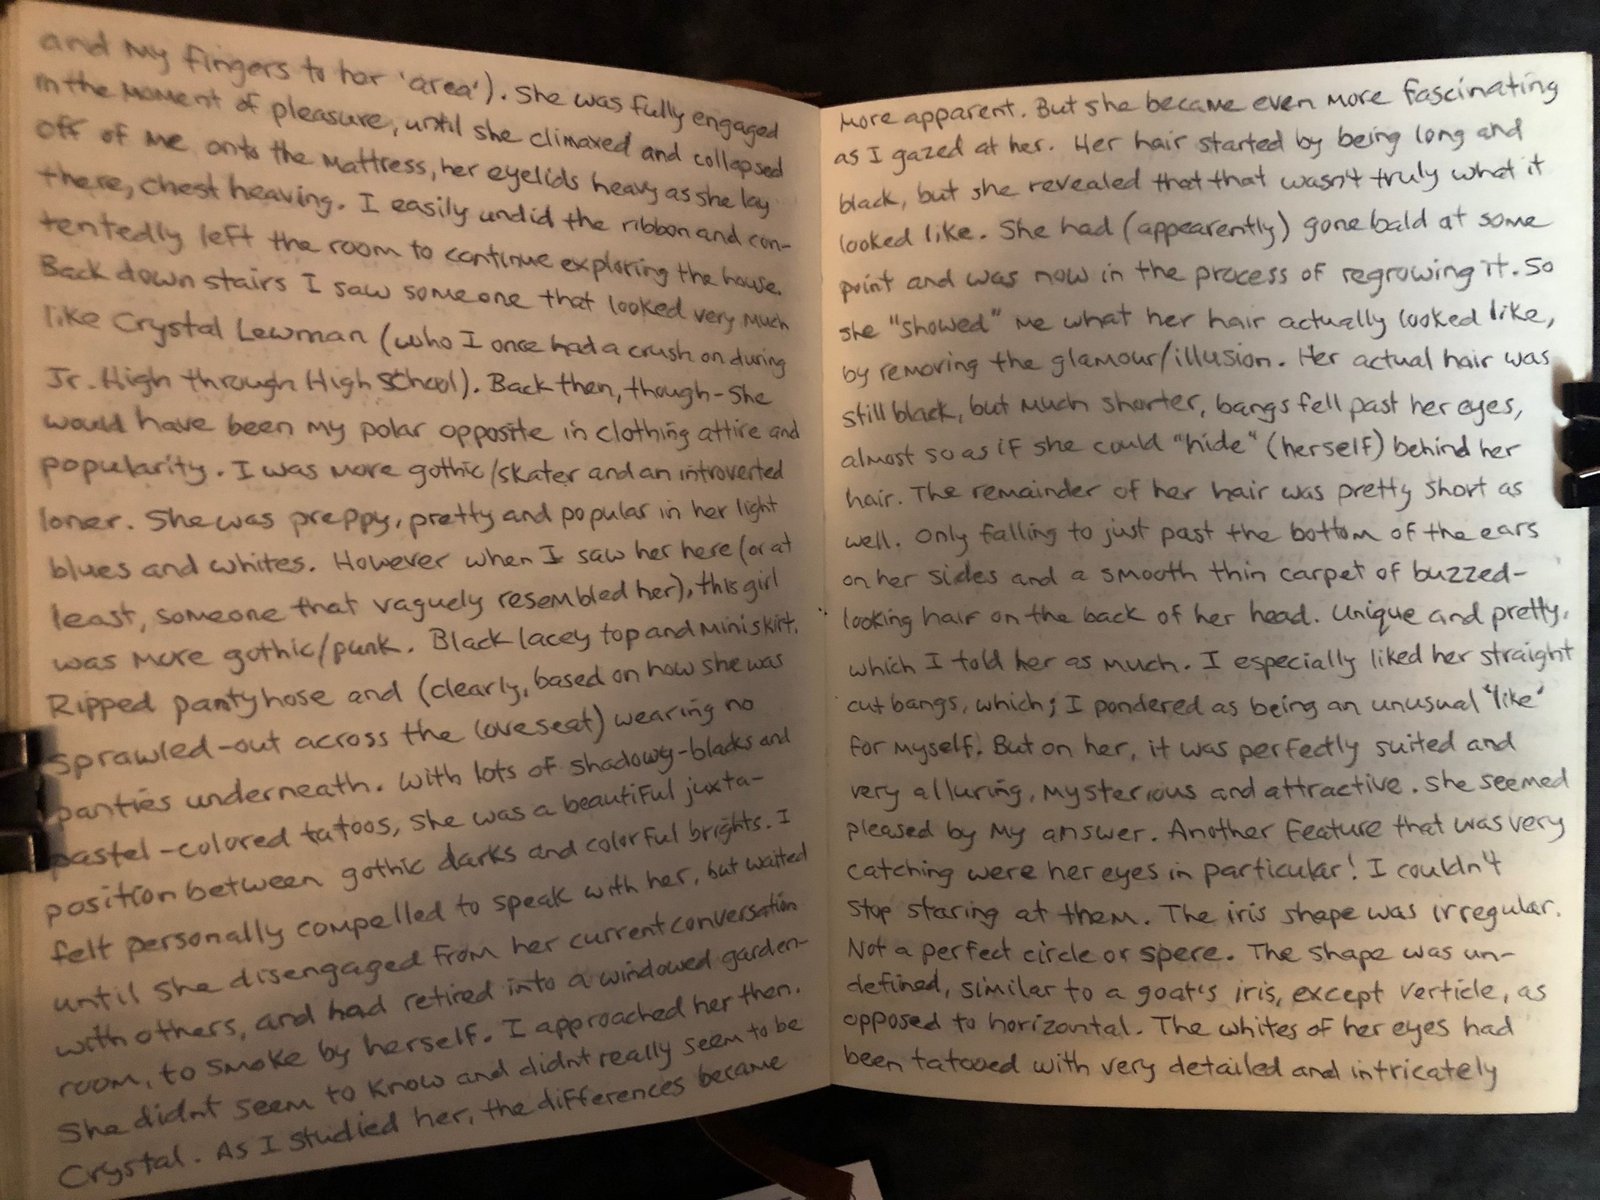 and my fingers to her 'area'). She was fully engaged
in the moment of pleasure, until she climaxed and collapsed
off of me onto the mattress, her eyelids heavy as she lay
there, chest heaving. I easily undid the ribbon and con-
tentedly left the room to continue exploring the house.
Back down stairs I saw someone that looked very much
like Crystal Lewman (who I once had a crush on during
Jr. High through High School). Back then, though- She
would have been my polar opposite in clothing attire and
popularity. I was more gothic/skater and an introverted
loner. She was preppy, pretty and popular in her light
blues and whites. However when I saw her here (or at
least, someone that vaguely resembled her), this girl
was more gothic/punk. Black lacey top and miniskirt.
Ripped pantyhose and (clearly, based on how she was
sprawled-out across the loveseat) wearing no
panties underneath. With lots of shadowy-blacks and
pastel-colored tatoos, she was a beautiful juxta-
position between gothic darks and colorful brights. I
felt personally compelled to speak with her, but waited
until she disengaged from her current conversation
with others, and had retired into a windowed garden-
room, to smoke by herself. I approached her then.
She didnt seem to know and didnt really seem to be
Crystal. As I studied her, the differences became
more apparent. But she became even more fascinating
as I gazed at her. Her hair started by being long and
black, but she revealed that that wasn't truly what it
looked like. She had (appearently) gone bald at some
point and was now in the process of regrowing it. So
she "showed" me what her hair actually looked like,
by removing the glamour/illusion. Her actual hair was
still black, but much shorter, bangs fell past her eyes,
almost so as if she could "hide" (herself) behind her
hair. The remainder of her hair was pretty short as
well. Only falling to just past the bottom of the ears
on her sides and a smooth thin carpet of buzzed-
looking hair on the back of her head. Unique and pretty,
which I told her as much. I especially liked her straight
cut bangs, which; I pondered as being an unusual 'like'
for myself. But on her, it was perfectly suited and
very alluring, mysterious and attractive. She seemed
pleased by my answer. Another feature that was very
catching were her eyes in particular! I couldn't
stop staring at them. The iris shape was irregular.
Not a perfect circle or spere. The shape was un-
defined, similar to a goat's iris, except verticle, as
opposed to horizontal. The whites of her eyes had
been tatooed with very detailed and intricately